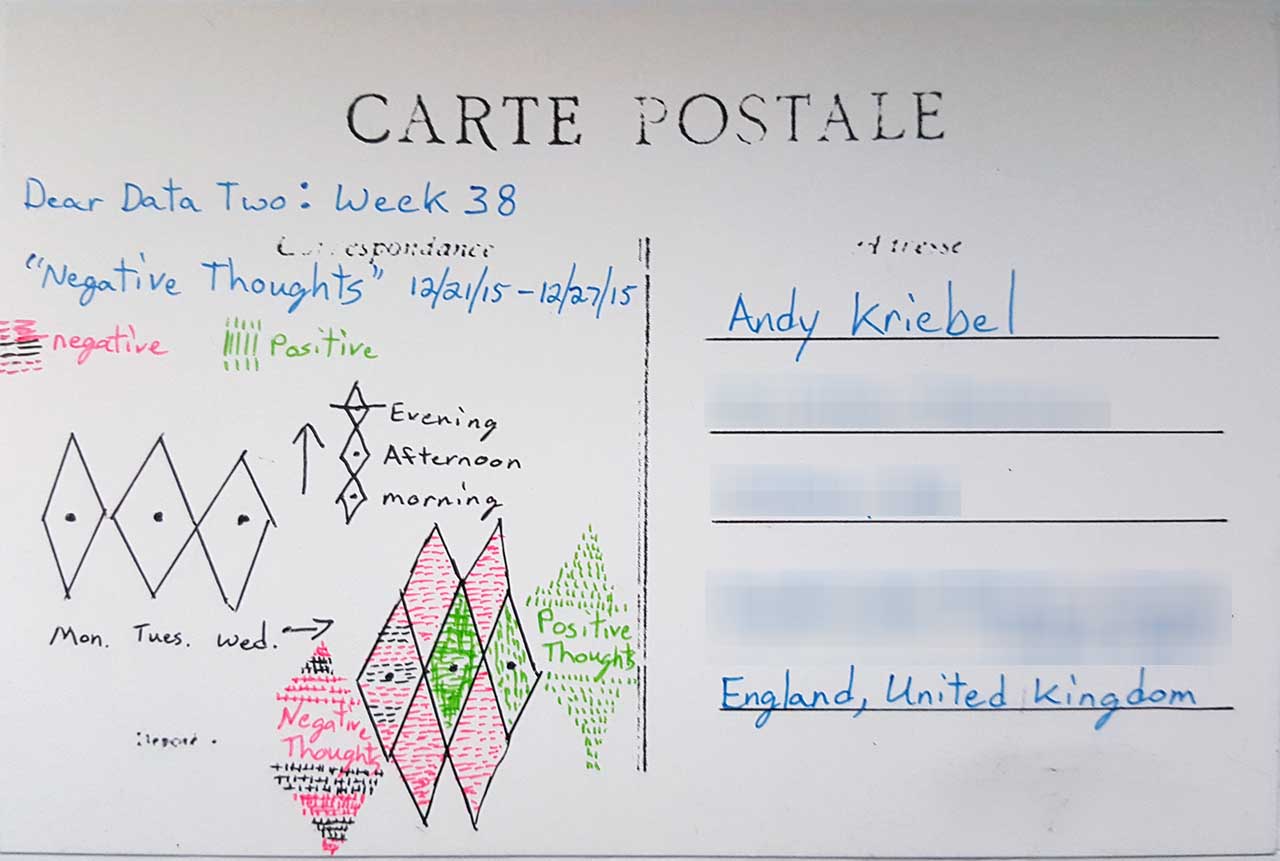 CARTE POSTALE
Dear Data Two: Week 38
"Negative Thoughts" 12/21/15 - 12/27/15
negative
Positive
Evening
Afternoon
morning
Mon. Tues. Wed.
Negative
Thoughts
Positive
Thoughts
Andy Kriebel
England, United Kingdom